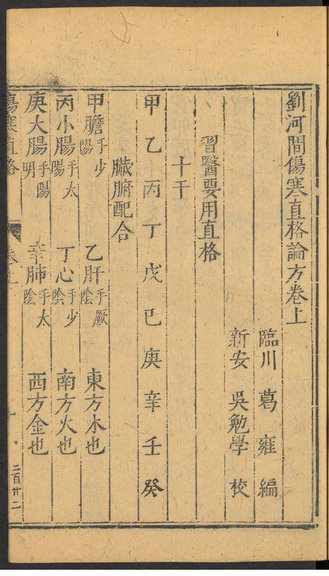 劉河間傷寒直格論方卷上
臨川 葛雍 編
新安 吳勉學 校
習醫要用直格
十干
甲乙丙丁戊己庚辛壬癸
臟腑配合
甲膽手少陽 乙肝手厥陰 東方木也
丙小腸手太陽 丁心手少陰 南方火也
庚大腸手陽明 辛肺手太陰 西方金也
傷寒直格 卷上 二百廿二